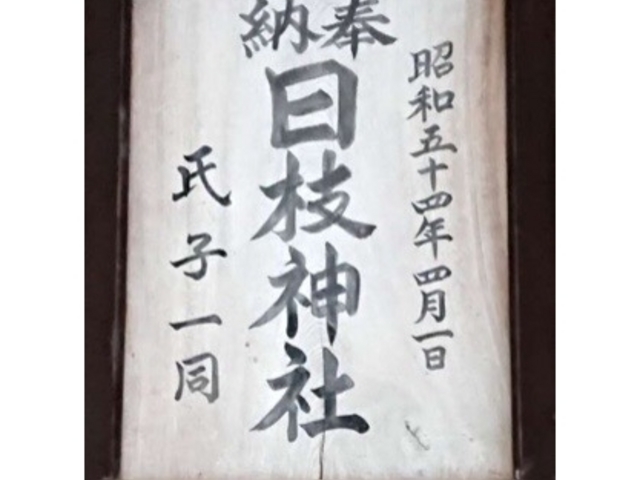 奉納
昭和五十四年四月一日
日枝神社
氏子一同